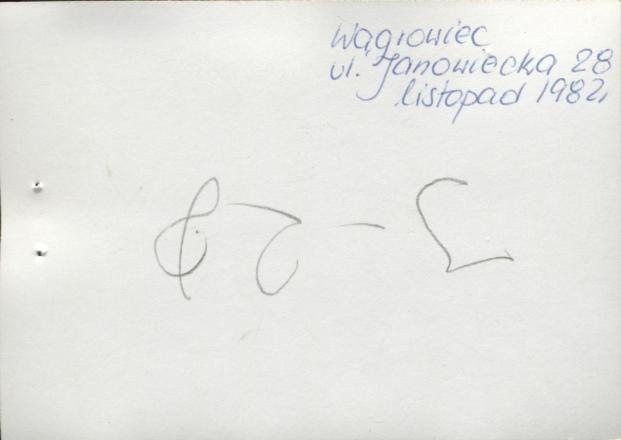 Wągrowiec
ul. Janowiecka 28
listopad 1982r